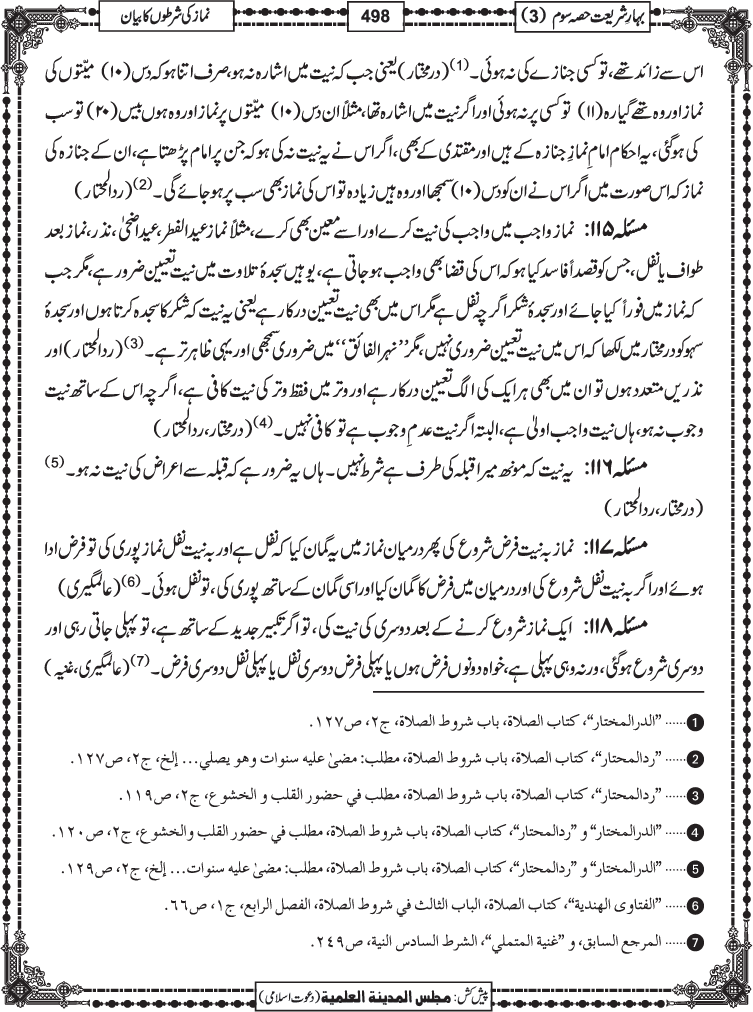 بہارِ شریعت حصہ سوم (3)
498
نماز کی شرطوں کا بیان
اس سے زائد تھے، تو کسی جنازے کی نہ ہوئی۔(1) (درمختار) یعنی جب کہ نیت میں اشارہ نہ ہو، صرف اتنا ہو کہ دس (۱۰) میّتوں کی
نماز اور وہ تھے گیارہ (۱۱) تو کسی پر نہ ہوئی اور اگر نیت میں اشارہ تھا، مثلاً ان دس (۱۰) میّتوں پر نماز اور وہ ہوں بیس (۲۰) تو سب
کی ہوگئی، یہ احکام امامِ نمازِ جنازہ کے ہیں اور مقتدی کے بھی، اگر اس نے یہ نیت نہ کی ہو کہ جن پر امام پڑھتا ہے، ان کے جنازہ کی
نماز کہ اس صورت میں اگر اس نے ان کو دس (۱۰) سمجھا اور وہ ہیں زیادہ تو اس کی نماز بھی سب پر ہو جائے گی۔(2) (ردالمحتار)
مسئلہ ۱۱۵: نماز واجب میں واجب کی نیت کرے اور اسے معین بھی کرے، مثلاً نماز عید الفطر، عید اضحیٰ، نذر، نماز بعد
طواف یا نفل، جس کو قصداً فاسد کیا ہو کہ اس کی قضا بھی واجب ہو جاتی ہے، یوہیں سجدۂ تلاوت میں نیت تعیین ضرور ہے، مگر جب
کہ نماز میں فوراً کیا جائے اور سجدۂ شکر اگرچہ نفل ہے مگر اس میں بھی نیت تعیین درکار ہے یعنی یہ نیت کہ شکر کا سجدہ کرتا ہوں اور سجدۂ
سہو کو درمختار میں لکھا کہ اس میں نیت تعیین ضروری نہیں، مگر ’’نہر الفائق‘‘ میں ضروری سمجھی اور یہی ظاہر تر ہے۔(3) (ردالمحتار) اور
نذریں متعدد ہوں تو ان میں بھی ہر ایک کی الگ تعیین درکار ہے اور وتر میں فقط وتر کی نیت کافی ہے، اگرچہ اس کے ساتھ نیت
وجوب نہ ہو، ہاں نیت واجب اولیٰ ہے، البتہ اگر نیت عدم وجوب ہے تو کافی نہیں۔(4) (درمختار، ردالمحتار)
مسئلہ ۱۱۶: یہ نیت کہ مونھ میرا قبلہ کی طرف ہے شرط نہیں۔ ہاں یہ ضرور ہے کہ قبلہ سے اعراض کی نیت نہ ہو۔(5)
(درمختار، ردالمحتار)
مسئلہ ۱۱۷: نماز بہ نیت فرض شروع کی پھر درمیان نماز میں یہ گمان کیا کہ نفل ہے اور بہ نیت نفل نماز پوری کی تو فرض ادا
ہوئے اور اگر بہ نیت نفل شروع کی اور درمیان میں فرض کا گمان کیا اور اسی گمان کے ساتھ پوری کی، تو نفل ہوئی۔(6) (عالمگیری)
مسئلہ ۱۱۸: ایک نماز شروع کرنے کے بعد دوسری کی نیت کی، تو اگر تکبیر جدید کے ساتھ ہے، تو پہلی جاتی رہی اور
دوسری شروع ہوگئی، ورنہ وہی پہلی ہے، خواہ دونوں فرض ہوں یا پہلی فرض دوسری نفل یا پہلی نفل دوسری فرض۔(7) (عالمگیری، غنیہ)
1 ...... ”الدرالمختار“، کتاب الصلاة، باب شروط الصلاة، ج۲، ص۱۲۷.
2 ...... ”ردالمحتار“، کتاب الصلاة، باب شروط الصلاة، مطلب: مضیٰ علیه سنوات وهو یصلي... إلخ، ج۲، ص۱۲۷.
3 ...... ”ردالمحتار“، کتاب الصلاة، باب شروط الصلاة، مطلب في حضور القلب و الخشوع، ج۲، ص۱۱۹.
4 ...... ”الدرالمختار“ و ”ردالمحتار“، کتاب الصلاة، باب شروط الصلاة، مطلب في حضور القلب والخشوع، ج۲، ص۱۲۰.
5 ...... ”الدرالمختار“ و ”ردالمحتار“، کتاب الصلاة، باب شروط الصلاة، مطلب: مضیٰ علیه سنوات... إلخ، ج۲، ص۱۲۹.
6 ...... ”الفتاوی الهندیة“، کتاب الصلاة، الباب الثالث في شروط الصلاة، الفصل الرابع، ج۱، ص۶۶.
7 ...... المرجع السابق، و ”غنیة المتملي“، الشرط السادس النیة، ص۲۴۹.
پیش کش: مجلس المدینة العلمیة (دعوتِ اسلامی)